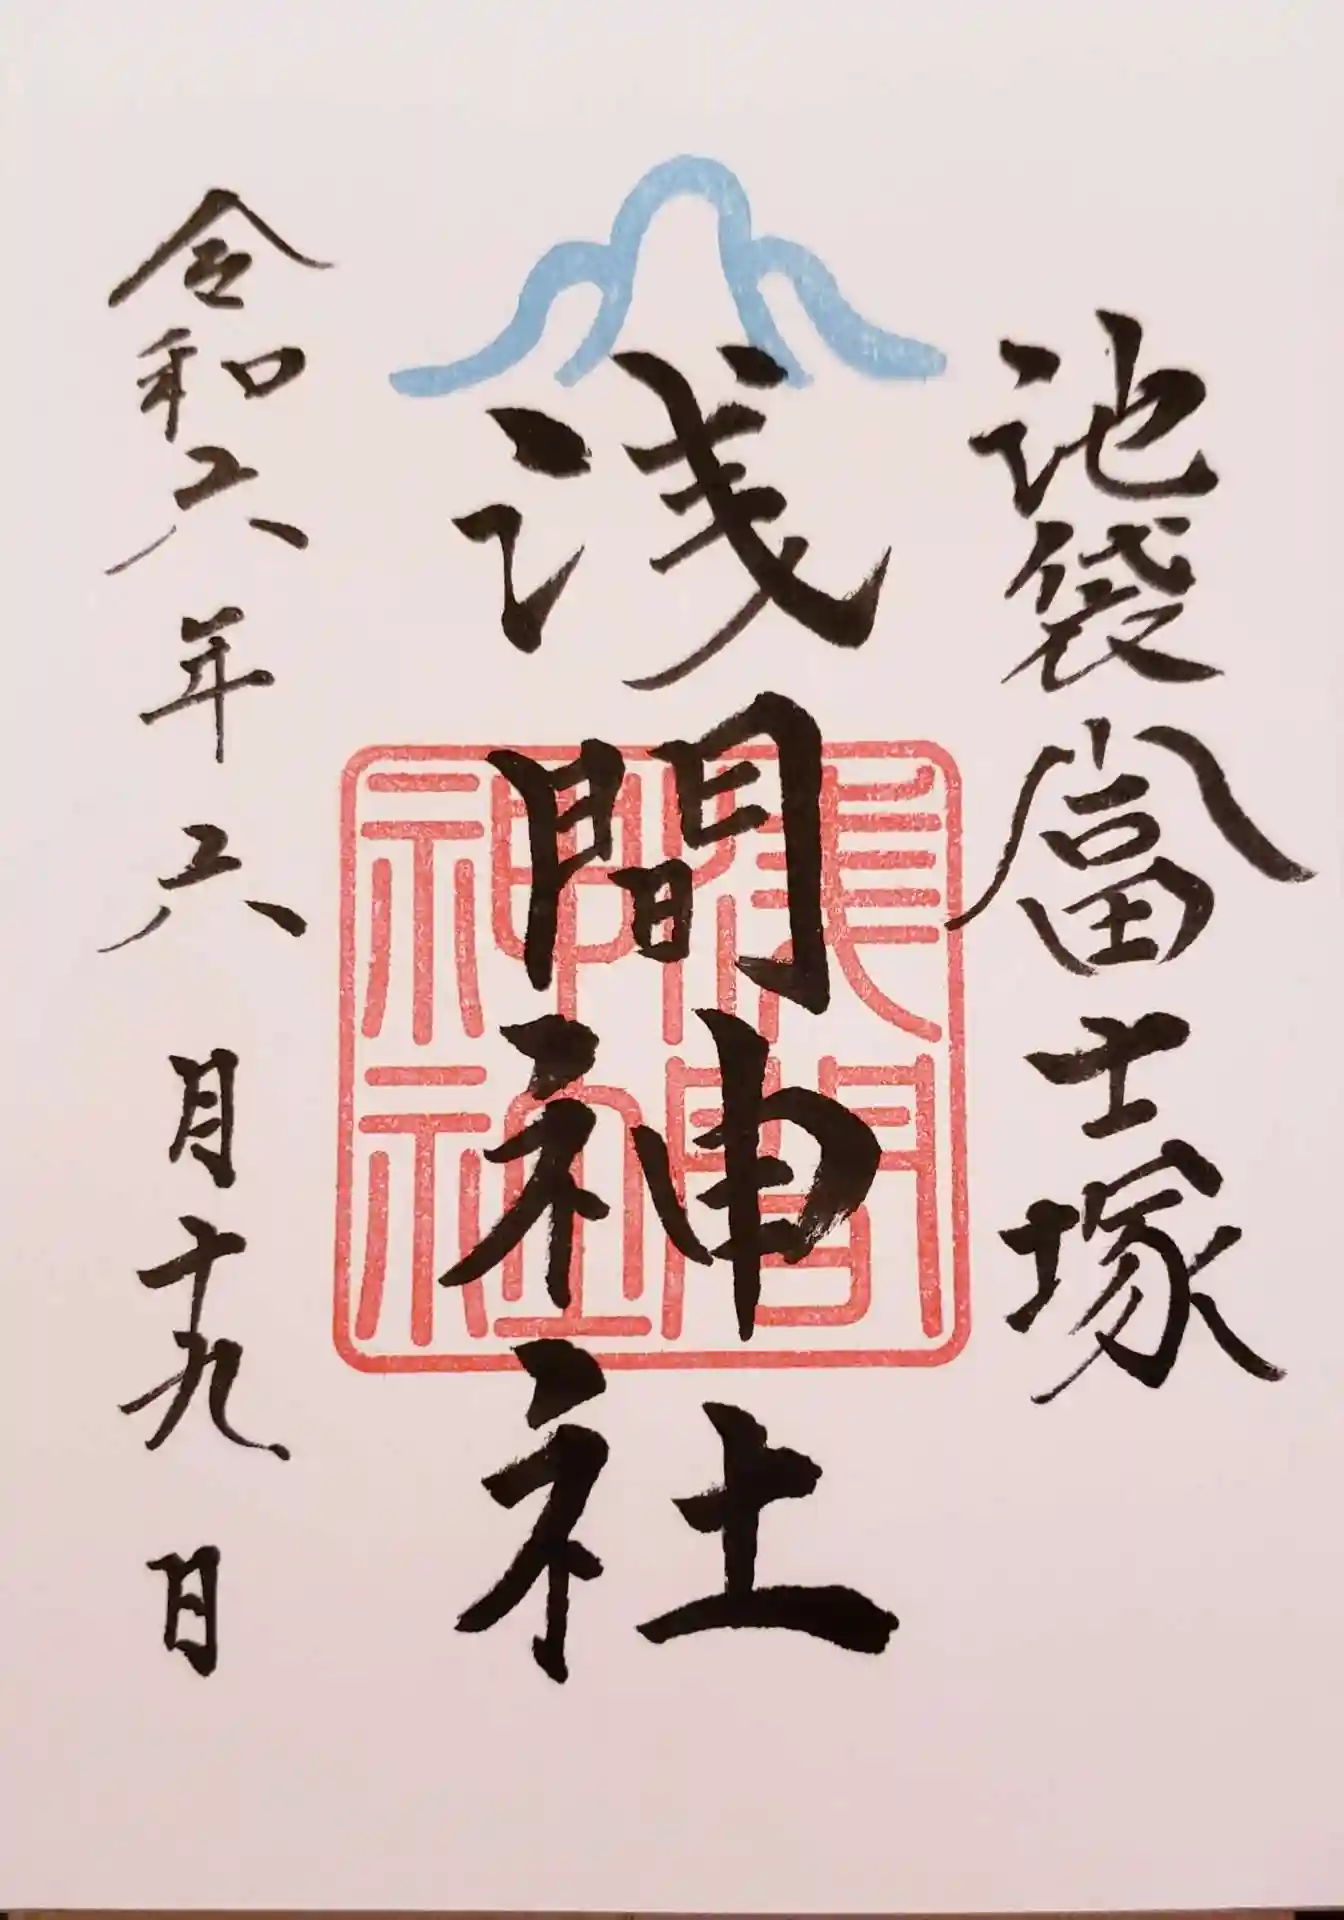 池袋富士塚
浅間神社
浅間神社
令和六年六月十九日